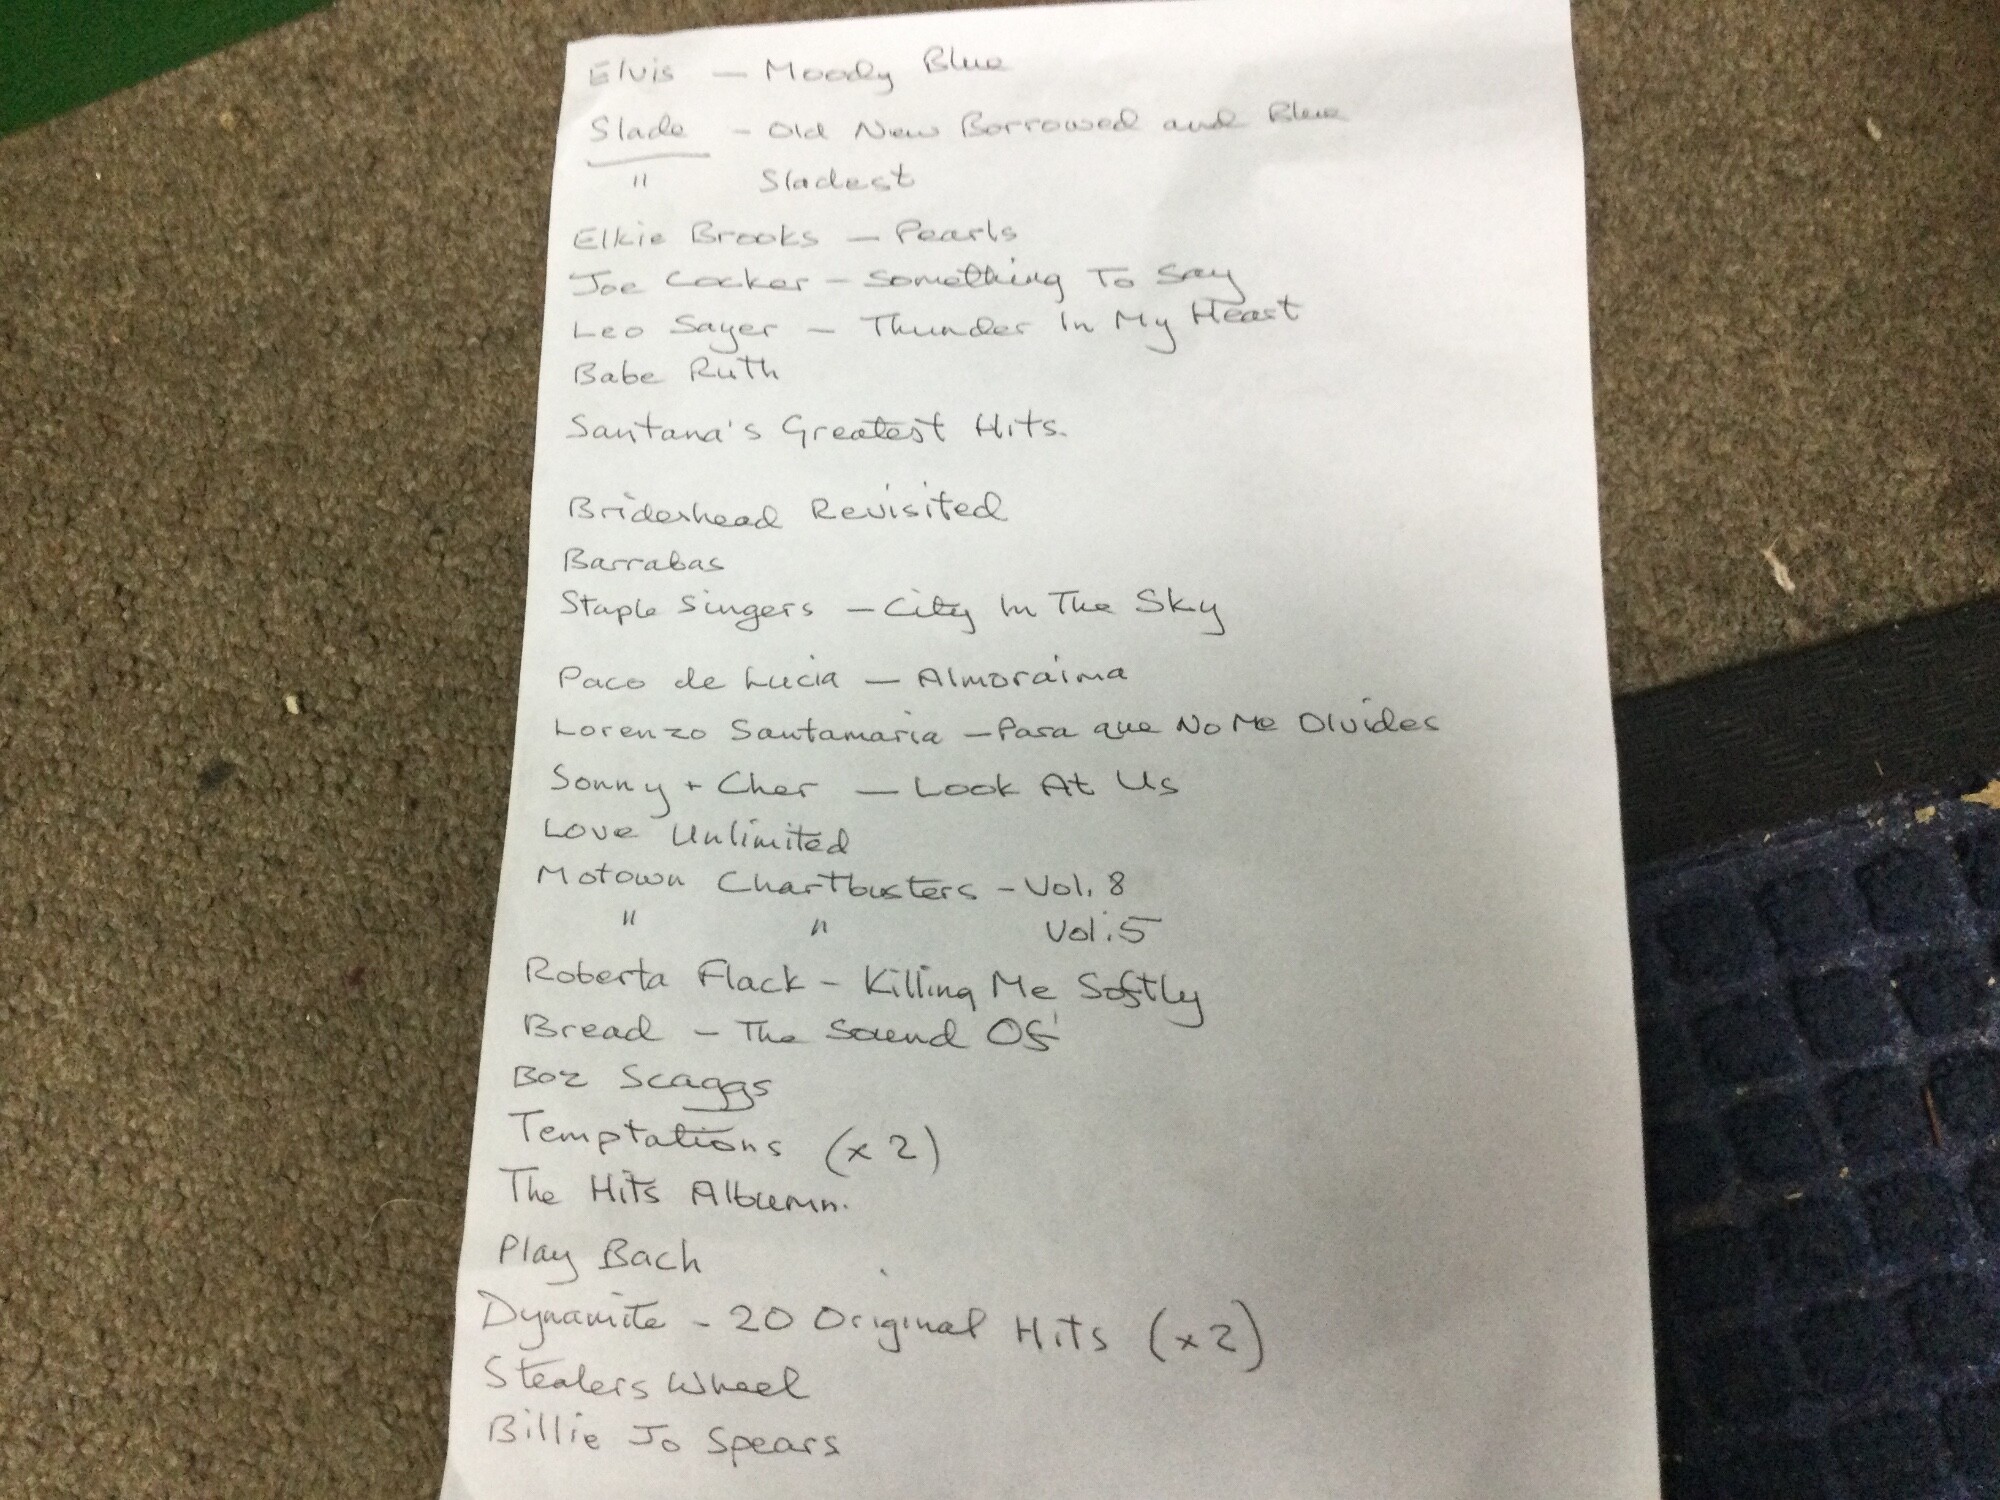 Elvis — Moody Blue
Slade - Old New Borrowed and Blue
" Sladest
Elkie Brooks — Pearls
Joe Cocker - Something To Say
Leo Sayer - Thunder In My Heart
Babe Ruth
Santana's Greatest Hits.
Brideshead Revisited
Barrabas
Staple Singers - City In The Sky
Paco de Lucia — Almoraima
Lorenzo Santamaria - Para que No Me Olvides
Sonny + Cher — Look At Us
Love Unlimited
Motown Chartbusters - Vol. 8
" " Vol. 5
Roberta Flack - Killing Me Softly
Bread - The Sound Of
Boz Scaggs
Temptations (x2)
The Hits Albumn.
Play Bach
Dynamite - 20 Original Hits (x2)
Stealers Wheel
Billie Jo Spears